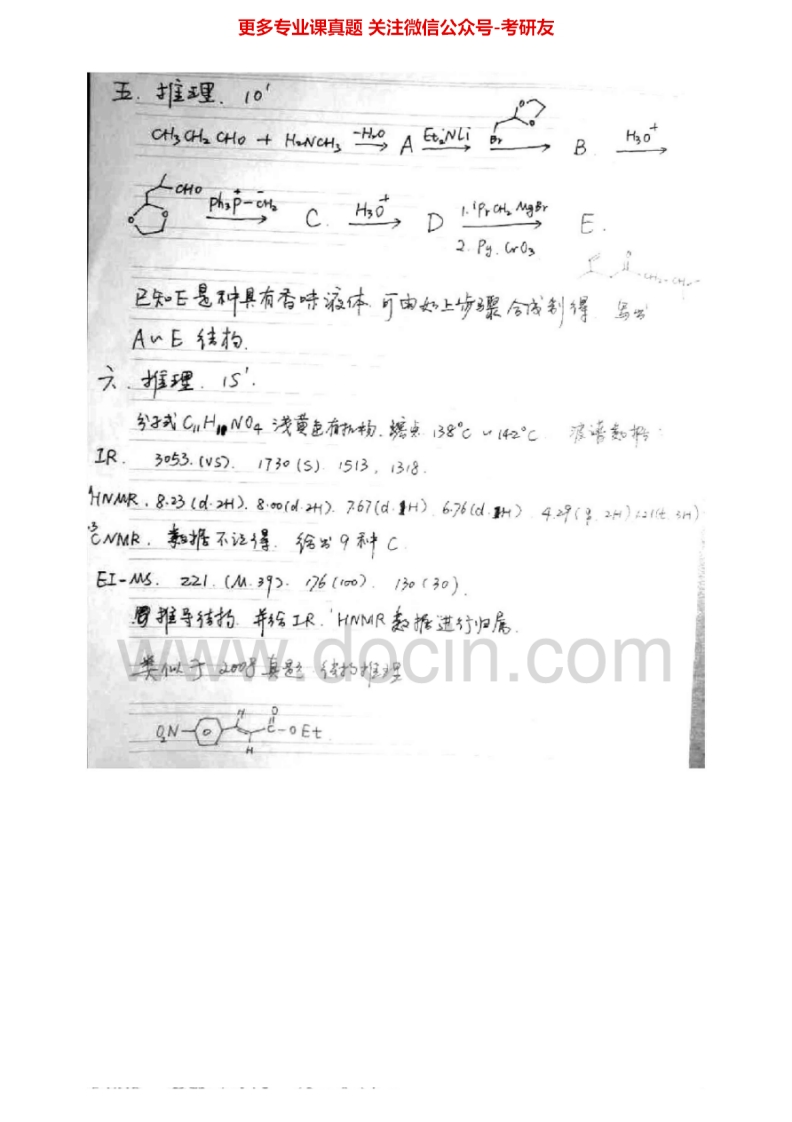 更多专业课真题 关注微信公众号-考研友
五. 推理. 10'
CH3CH2CHO + H2NCH3 -H2O A Et2NLi Br O O B H3O+
O O CHO Ph3P+-CH2- C. H3O+ D 1. iPrCH2MgBr 2. Py. CrO3 E.
已知E是种具有香味液体 可由如上步骤合成制得 写出
A~E 结构.
六. 推理. 15'.
分子式 C11H11NO4 浅黄色有机物. 熔点 138°C ~ 142°C 波谱数据:
IR. 3053.(vs). 1730(s). 1513, 1318.
1HNMR. 8.23(d.2H). 8.00(d.2H). 7.67(d.1H) 6.76(d.1H) 4.29(q. 2H) 1.21(t. 3H)
13CNMR. 数据不记得. 给出9种C.
EI-MS. 221.(M.39). 176(100). 130(30).
推导结构. 并给IR. 1HNMR数据进行归属.
www.docin.com
类似于2008真题 结构推理
O2N H H O C-OEt